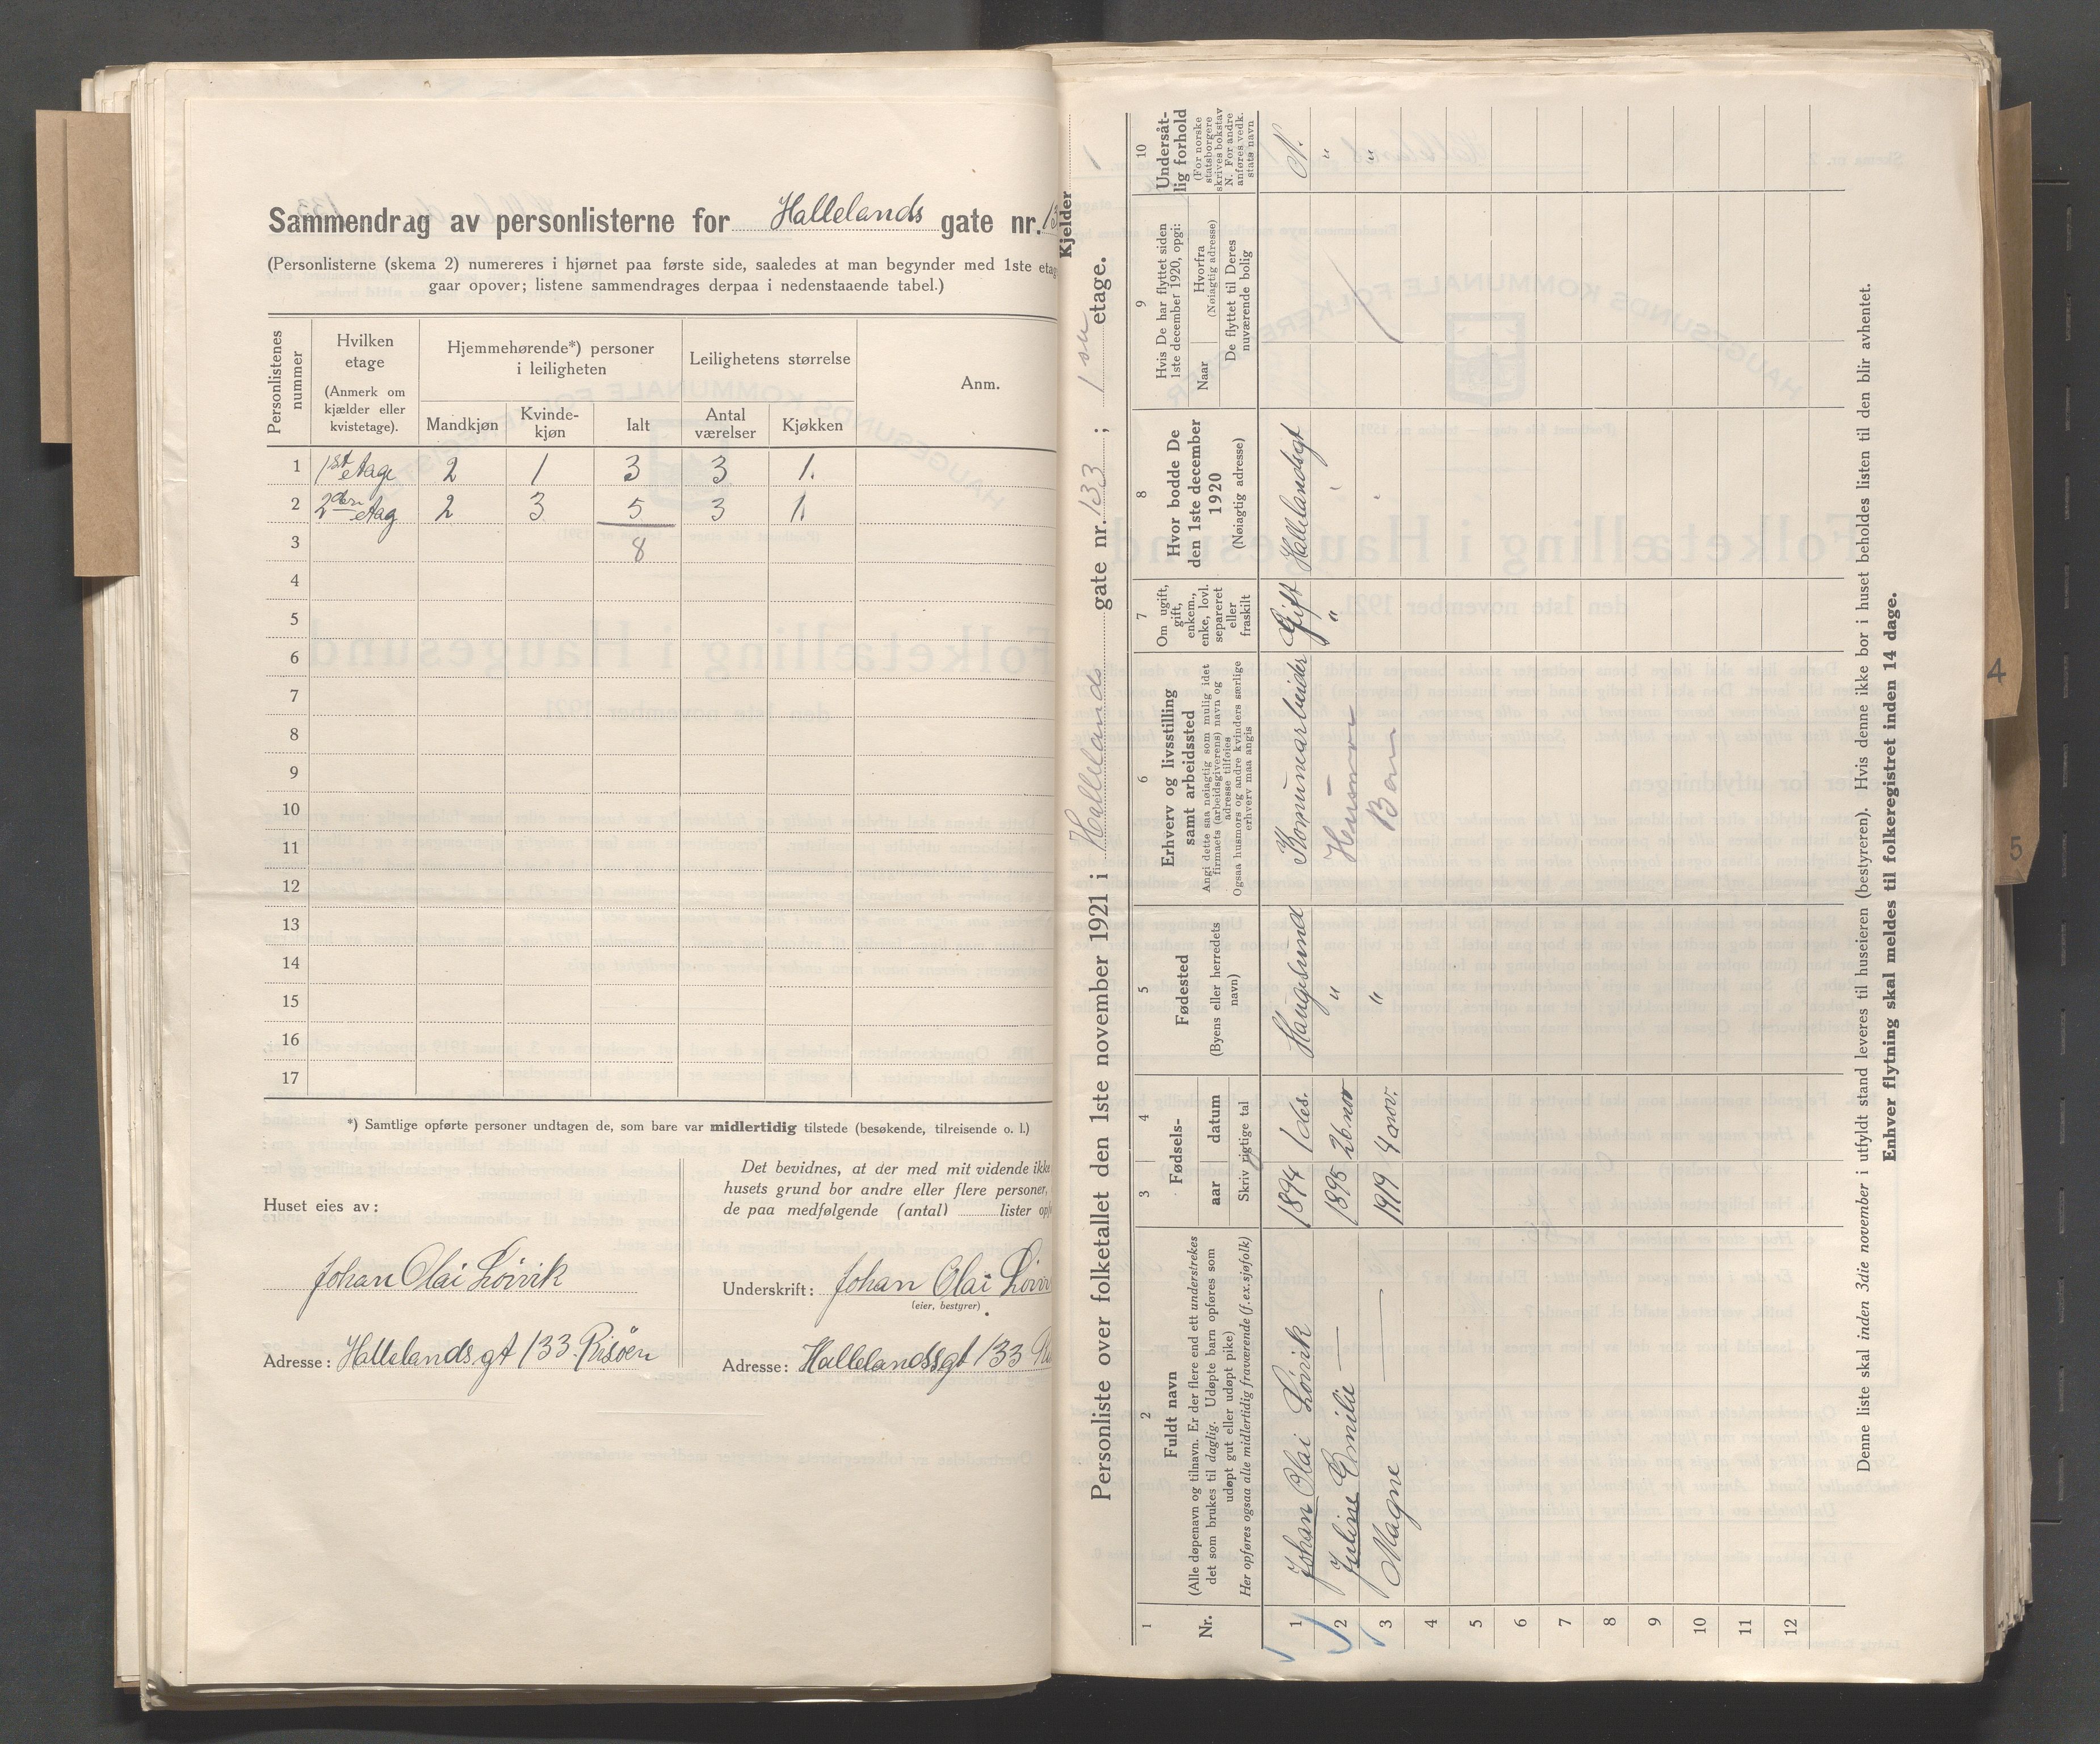 Sammendrag av personlisterne for Hallelands gate nr. 13
(Personlisterne (skema 2) numereres i hjørnet paa første side, saaledes at man begynder med 1ste etag
gaar opover; listene sammendrages derpaa i nedenstaaende tabel.)
Personlistenes nummer
Hvilken etage
(Anmerk om kjælder eller kvistetage).
Hjemmehørende*) personer i leiligheten
Leilighetens størrelse
Anm.
Mandkjøn
Kvindekjøn
Ialt
Antal værelser
Kjøkken
1 1st etage 2 1 3 3 1.
2 2den etag 2 3 5 3 1.
3 8
4
5
6
7
8
9
10
11
12
13
14
15
16
17
*) Samtlige opførte personer undtagen de, som bare var midlertidig tilstede (besøkende, tilreisende o. l.)
Huset eies av:
Johan Olai Lövik
Adresse: Hallelandsgt 133 Risöen
Det bevidnes, at der med mit vidende ikke
husets grund bor andre eller flere personer,
de paa medfølgende (antal) lister opf
Underskrift: Johan Olai
(eier, bestyrer).
Adresse: Hallelandssgt 133
Kjelder
Personliste over folketallet den 1ste november 1921 i Hallelands gate nr. 133 ; 1ste etage.
1
Nr.
2
Fuldt navn
(Alle døpenavn og tilnavn. Er der flere end ett understrekes
det som brukes til daglig. Udøpte barn opføres som
udøpt gut eller udøpt pike)
Her opføres ogsaa alle midlertidig fraværende (f.ex. sjøfolk)
3 4
Fødsels-
aar datum
Skriv rigtige tal
5
Fødested
(Byens eller herredets navn)
6
Erhverv og livsstilling
samt arbeidssted
Angi dette saa nøiagtig som mulig idet
firmaets (arbeidsgiverens) navn og
adresse tilføies
Ogsaa husmors og andre kvinders særlige
erhverv maa angis
7
Om ugift,
gift,
enkem.,
enke, lovl.
separeret
eller
fraskilt
8
Hvor bodde De
den 1ste december
1920
(Nøiagtig adresse)
9
Hvis De har flyttet siden
1ste december 1920, opgi:
Naar
Hvorfra
(Nøiagtig adresse)
De flyttet til Deres
nuværende bolig
10
Undersåt-
lig forhold
(For norske
statsborgere
skrives bokstav
N. For andre
anføres vedk.
stats navn
1 Johan Olai Lövik 1894 1 des. Haugesund Komunearbeider Gift Hallelandsgt N.
2 Juline Emilie — 1895 26 nov " Husmor " " "
3 Magne — 1919 4 nov. " Barn " "
4
5
6
7
8
9
10
11
12
Denne liste skal inden 3die november i utfyldt stand leveres til huseieren (bestyreren). Hvis denne ikke bor i huset beholdes listen til den blir avhentet.
Enhver flytning skal meldes til folkeregistret inden 14 dage.
4
5